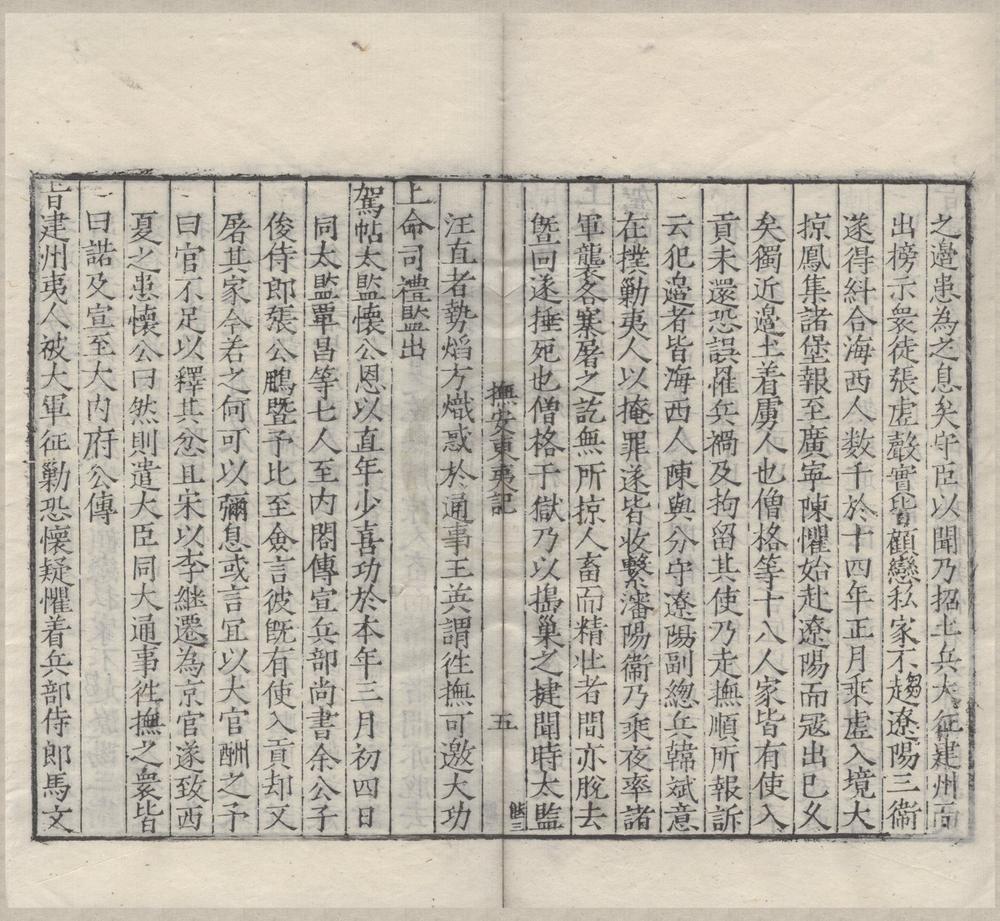 之邊患為之息矣守臣以聞乃招土兵大征建州而
出榜示衆徒張虛聲實皆顧戀私家不趨遼陽三衛
遂得糾合海西人数千於十四年正月乘虛入境大
掠鳳集諸堡報至廣寧陳懼始赴遼陽而寇出已久
矣獨近邊土着虜人也僧格等十八人家皆有使入
貢未還恐誤罹兵禍及拘留其使乃走撫順所報訴
云犯邊者皆海西人陳與分守遼陽副緫兵韓斌意
在撲勦夷人以掩罪遂皆收繫瀋陽衛乃乘夜率諸
軍襲各寨屠之訖無所掠人畜而精壯者間亦脫去
曁回遂捶死也僧格于獄乃以搗巢之捷聞時太監
撫安東夷記
五
汪直者勢焰方熾惑於通事王英謂徃撫可邀大功
上命司禮監出
駕帖太監懷公恩以直年少喜功於本年三月初四日
同太監覃昌等七人至内閣傳宣兵部尚書余公子
俊侍郎張公鵬曁予比至僉言彼既有使入貢却又
屠其家今若之何可以彌息或言冝以大官酬之予
曰官不足以釋其忿且宋以李継遷為京官遂致西
夏之患懷公曰然則遣大臣同大通事徃撫之衆皆
曰諾及宣至大内府公傳
旨建州夷人被大軍征勦恐懷疑懼着兵部侍郎馬文